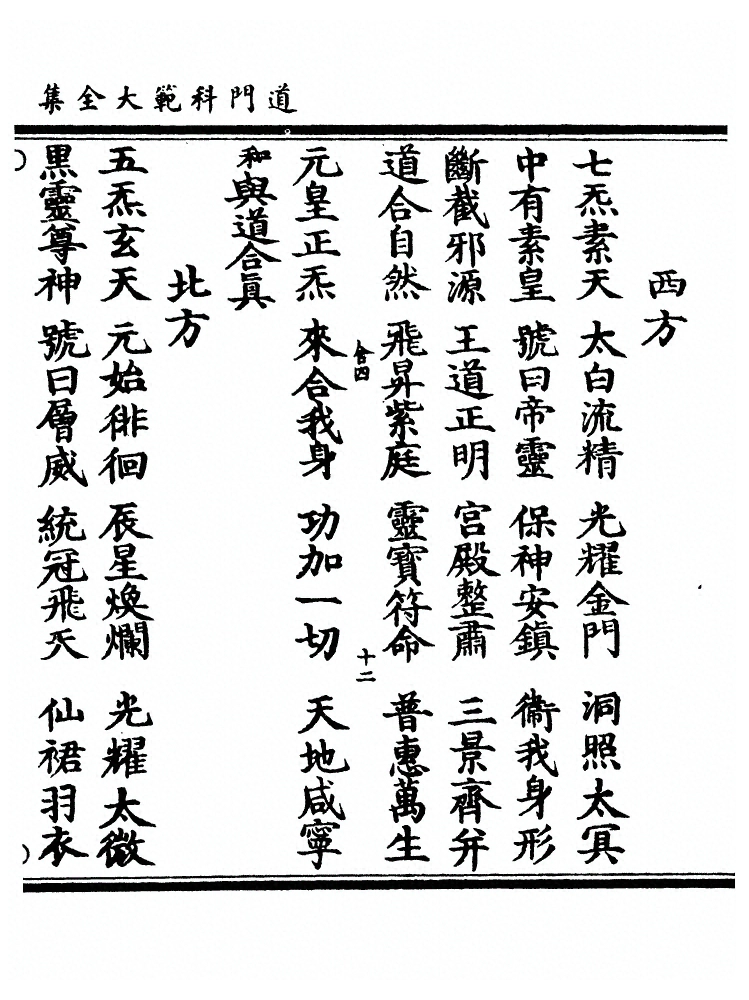 道門科範大全集
西方
七炁素天 太白流精 光耀金門 洞照太冥
中有素皇 號曰帝靈 保神安鎮 衞我身形
斷截邪源 王道正明 宮殿整肅 三景齊并
道合自然 飛昇紫庭 靈寶符命 普惠萬生
舍四 十二
元皇正炁 來合我身 功加一切 天地咸寧
和與道合眞
北方
五炁玄天 元始徘徊 辰星煥爛 光耀太微
黑靈尊神 號曰層威 統冠飛天 仙裙羽衣